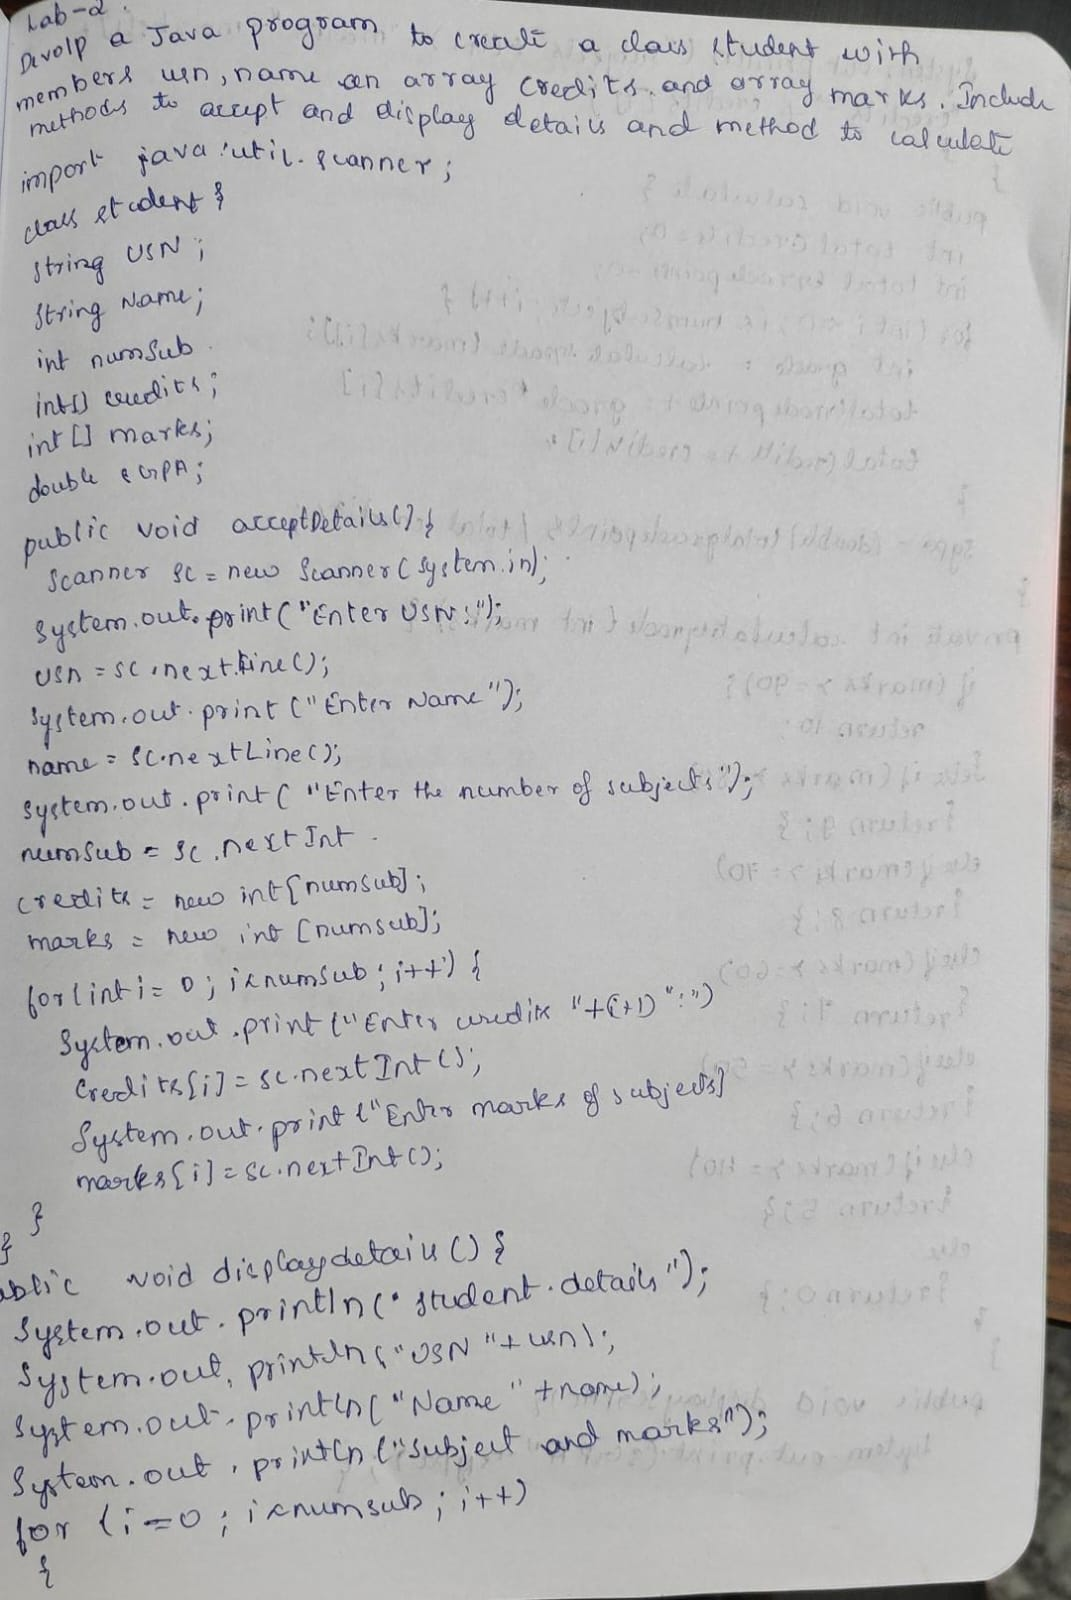 Lab-2.
Divolp a Java program to create a class student with
members usn, name an array credits. and array marks. Include
methods to accept and display details and method to calculate
import java.util.scanner;
class student {
string USN;
string Name;
int numSub.
int[] credits;
int [] marks;
double SGPA;
public void acceptDetails() {
Scanner sc = new Scanner(system.in);
system.out.print("Enter USN:");
usn = sc.nextLine();
system.out.print ("Enter Name");
name = sc.nextLine();
system.out.print( "Enter the number of subjects");
numSub = sc.nextInt.
credits = new int[numsub];
marks = new int [numsub];
for(int i= 0; i<numsub; i++) {
System.out.print ("Enter credits "+(i+1) ":")
credits[i] = sc.nextInt ();
System.out.print ("Enter marks of subjects]
marks[i] = sc.nextInt();
}
}
ublic void displaydetails () {
System.out.println(" student.details");
System.out, println("USN "+ usn);
System.out.println( "Name" +name);
System.out.println ("subject and marks");
for (i=0; i<numsub; i++)
{